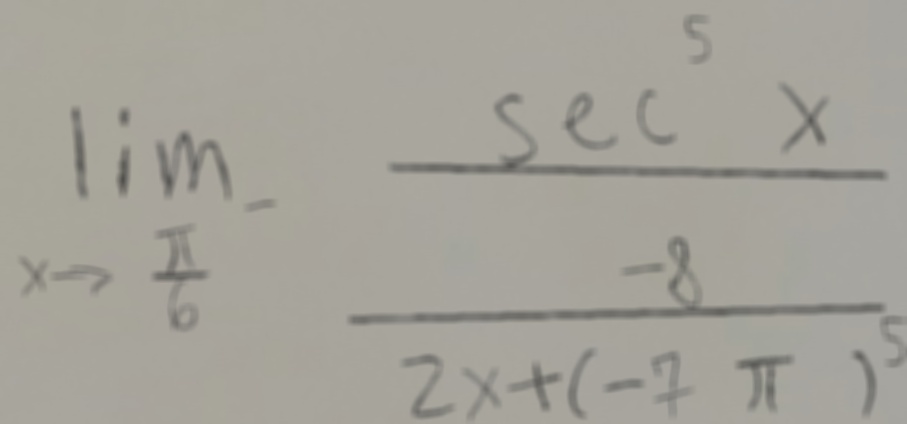 lim_{x→\frac{π}{6}^-} \frac{\frac{sec^5 x}{-8}}{2x+(-7 π )^5}